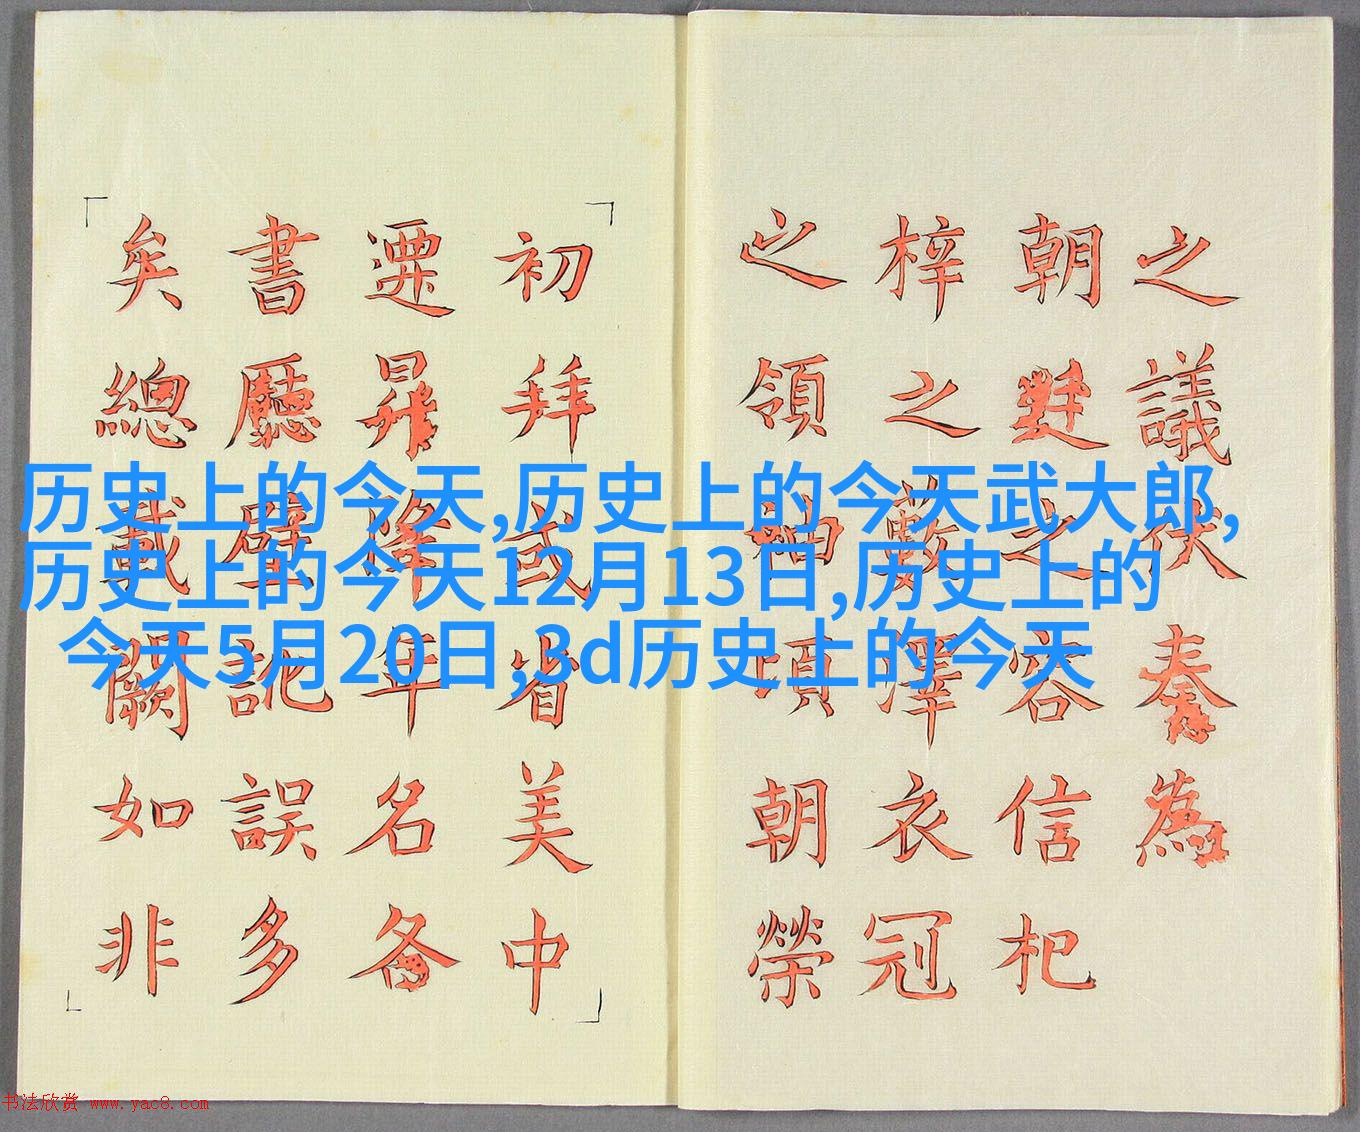 历史上的今天,历史上的今天武大郎,
历史上的今天12月13日,历史上的
今天5月20日,3d历史上的今天
之議伏奏為
朝之容信杞
梓之藪澤衣冠
之領袖項朝榮
初拜或省美中
遷降年名各
書廳壁訛誤多
矣總載闕如非
书法欣赏 www.yac8.com